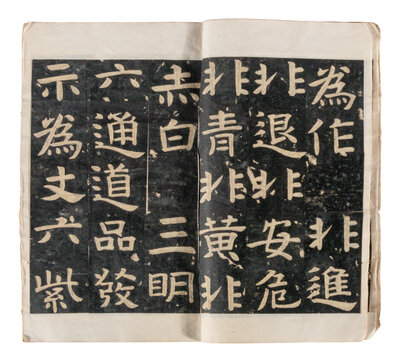 為作 非進
非退非安危
非青非黄非
赤白 三明
六通道品發
示為丈六紫